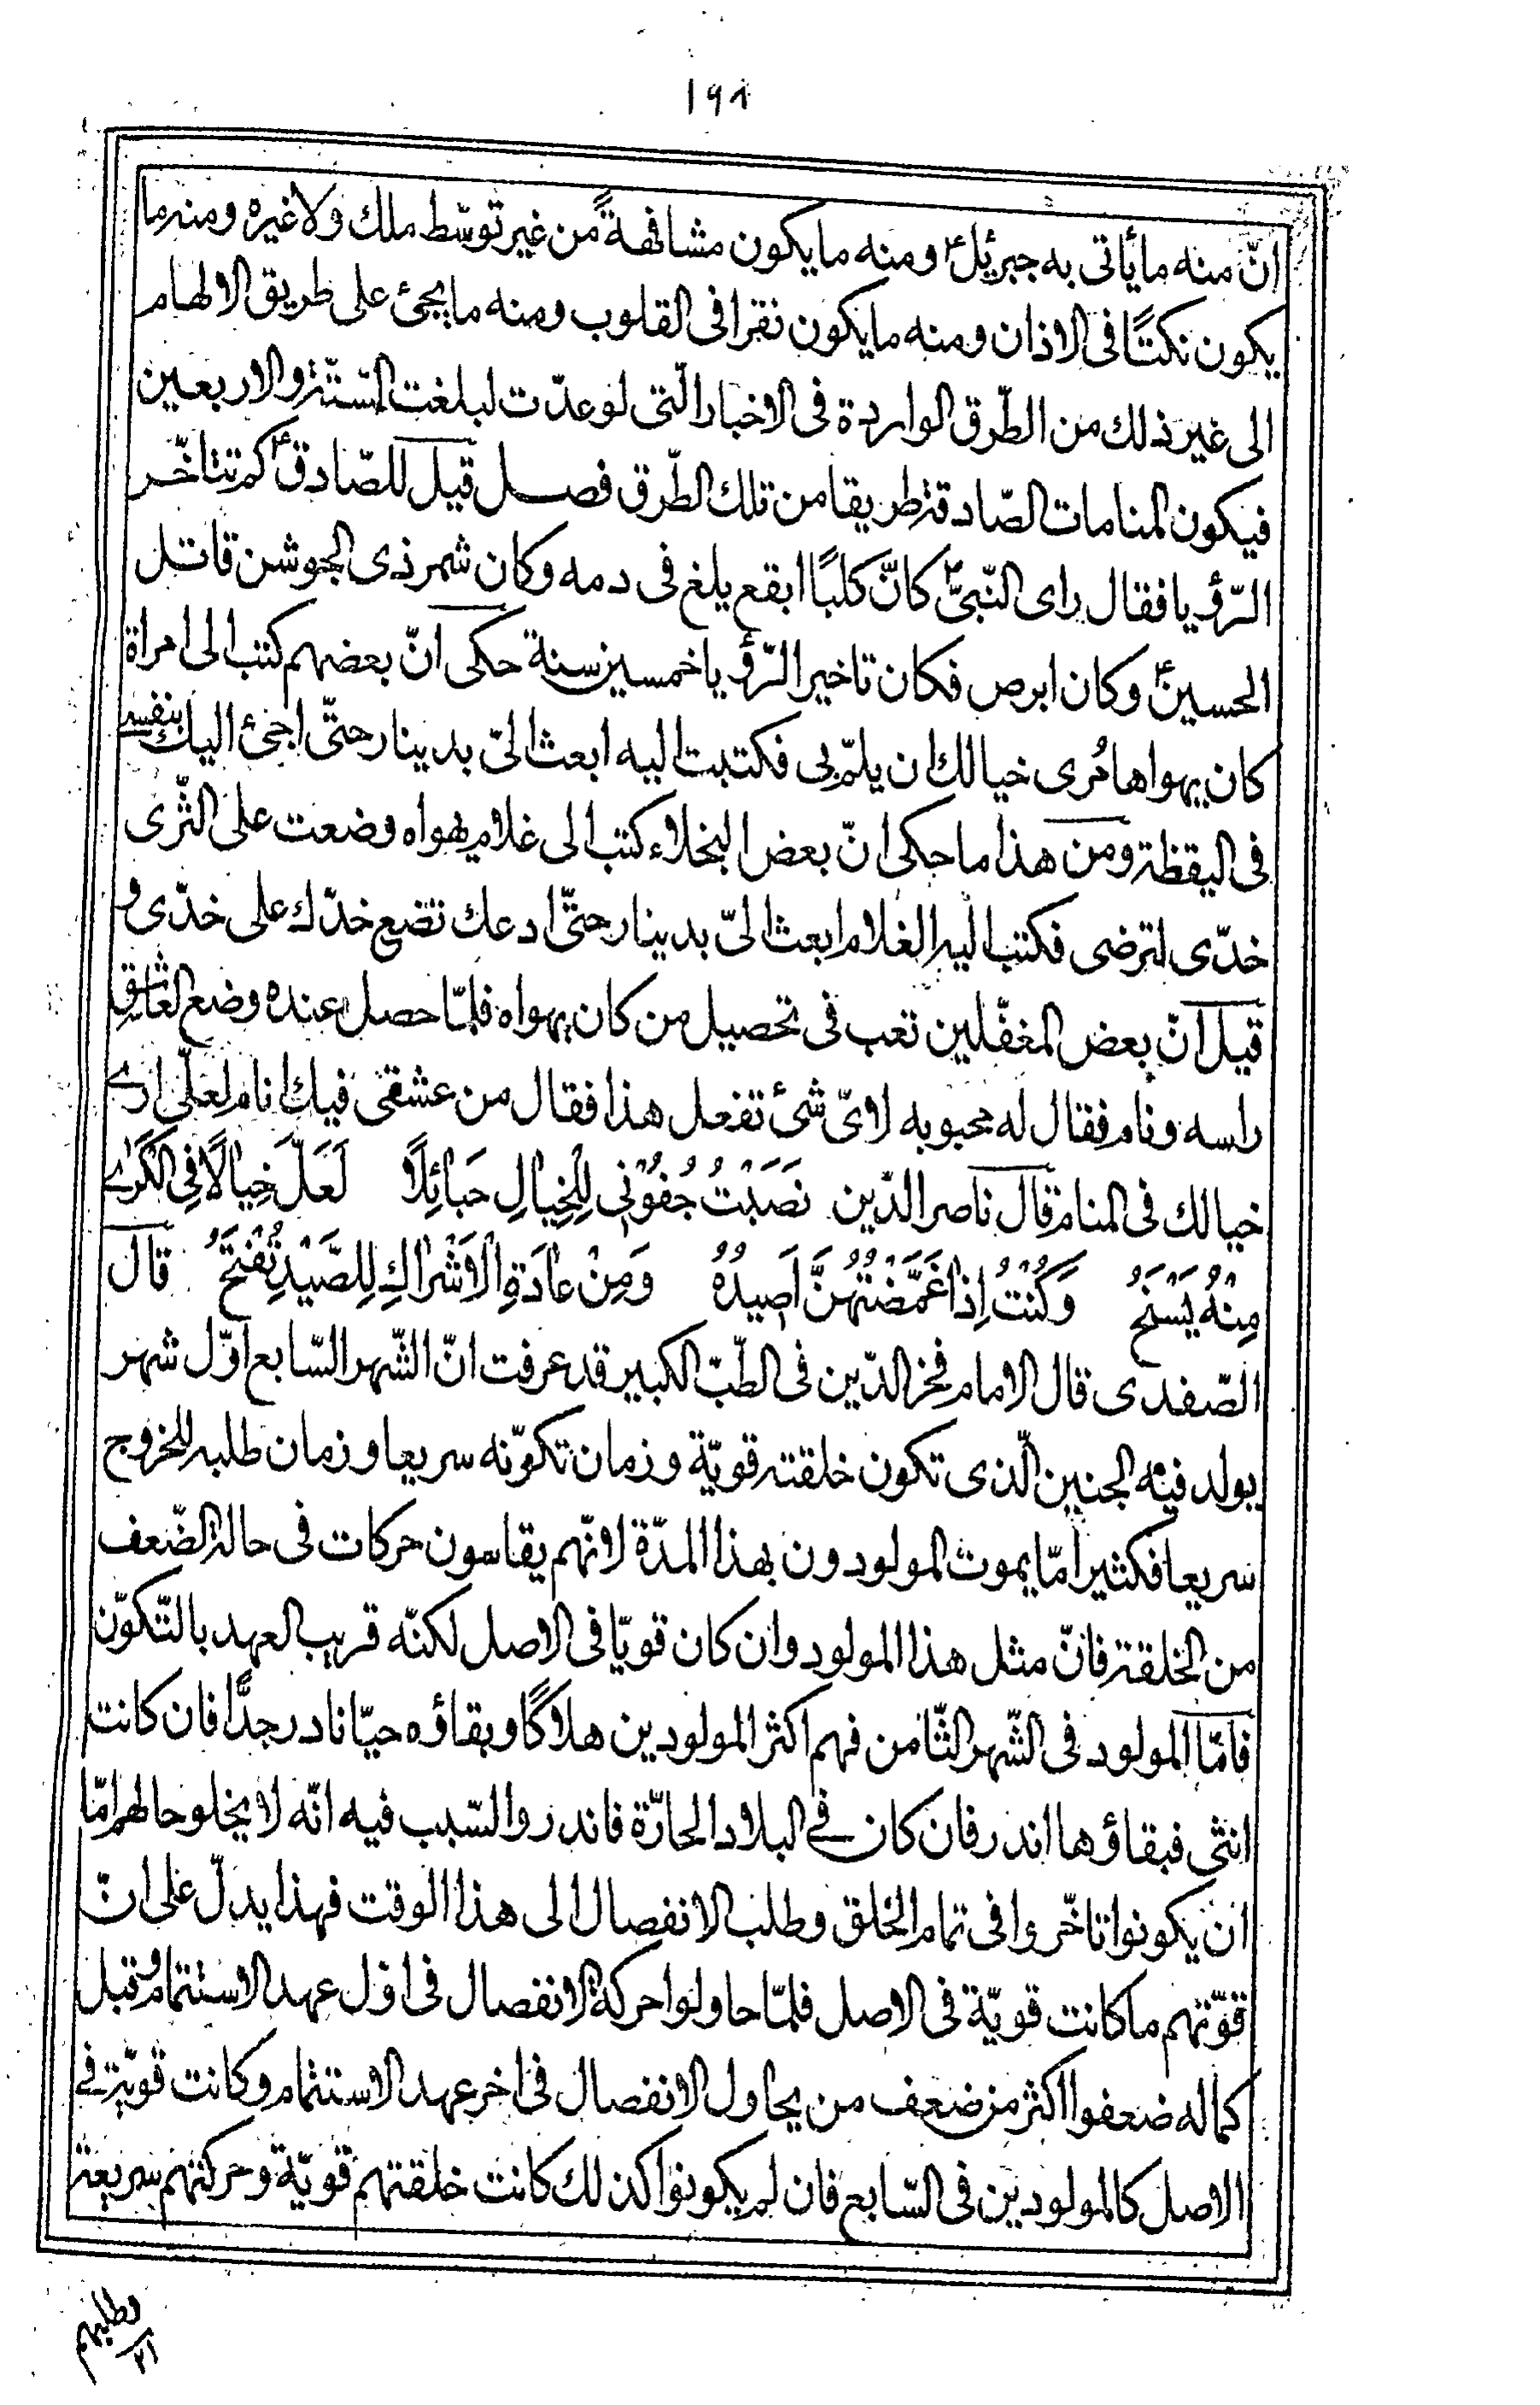 ۱۹۸
انّ منه ما يأتى به جبرئيل ع ومنه ما يكون مشافهةً من غير توسّط ملك ولا غيره ومنه ما
يكون نكتًا فى الاذان ومنه ما يكون نقرا فى القلوب ومنه ما يجئ على طريق الالهام
الى غير ذلك من الطّرق الواردة فى الاخبار الّتى لو عدّت لبلغت السّتّة والاربعين
فيكون المنامات الصّادقة طريقا من تلك الطّرق فصل قيل للصّادق ع كم تتاخّر
الرّؤيا فقال راى النّبىّ كانّ كلبًا ابقع يلغ فى دمه وكان شمر ذى الجوشن قاتل
الحسين ع وكان ابرص فكان تاخير الرّؤيا خمسين سنة حكى انّ بعضهم كتب الى امراة
كان يهواها مُرى خيالك ان يلمّ بى فكتبت اليه ابعث الىّ بدينار حتّى اجئ اليك بنفسى
فى اليقظة ومن هذا ما حكى انّ بعض البخلاء كتب الى غلام يهواه وضعت على الثّرى
خدّى لترضى فكتب اليه الغلام ابعث الىّ بدينار حتّى ادعك تضع خدّك على خدّى و
قيل انّ بعض المغفّلين تعب فى تحصيل من كان يهواه فلمّا حصل عنده وضع العاشق
راسه ونام فقال له محبوبه لاىّ شئ تفعل هذا فقال من عشقى فيك انام لعلّى ارى
خيالك فى المنام قال ناصر الدّين نَصَبْتُ جُفُوْنِى لِلْخِيالِ حَبائِلًا لَعَلَّ خِيالًا فِى الْكَرىٰ
مِنْهُ يَسْنَحُ وَكُنْتُ اِذا غَمَّضْتُهُنَّ اَصِيدُهُ وَمِنْ عادَةِ الْاَشْراكِ لِلصَّيْدِ تُفْتَحُ قال
الصّفدى قال الامام فخر الدّين فى الطّبّ الكبير قد عرفت انّ الشّهر السّابع اوّل شهر
يولد فيه الجنين الّذى تكون خلقته قويّة وزمان تكوّنه سريعا وزمان طلبه للخروج
سريعا فكثيرا مّا يموت المولودون بهذا المدّة لانّهم يقاسون حركات فى حالة الضّعف
من الخلقة فانّ مثل هذا المولود وان كان قويّا فى الاصل لكنّه قريب العهد بالتّكوّن
فامّا المولود فى الشّهر الثّامن فهم اكثر المولودين هلاكًا وبقاؤه حيّا نادر جدًّا فان كانت
انثى فبقاؤها اندر فان كان فى البلاد الحارّة فاندر والسّبب فيه انّه لا يخلو حالهم امّا
ان يكونوا تاخّروا فى تمام الخلق وطلب الانفصال الى هذا الوقت فهذا يدلّ على انّ
قوّتهم ما كانت قويّة فى الاصل فلمّا حاولوا حركة الانفصال فى اوّل عهد الاستتمام وقبل
كماله ضعفوا اكثر من ضعف من يحاول الانفصال فى اخر عهد الاستتمام وكانت قويّة فى
الاصل كالمولودين فى السّابع فان لم يكونوا كذلك كانت خلقتهم قويّة وحركتهم سريعة
وطلبهم